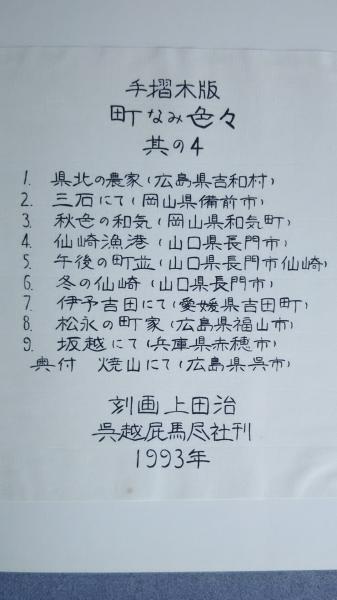 手摺木版
町なみ色々
其の4
1. 県北の農家(広島県吉和村)
2. 三石にて(岡山県備前市)
3. 秋色の和気(岡山県和気町)
4. 仙崎漁港(山口県長門市)
5. 午後の町並(山口県長門市仙崎)
6. 冬の仙崎(山口県長門市)
7. 伊予吉田にて(愛媛県吉田町)
8. 松永の町家(広島県福山市)
9. 坂越にて(兵庫県赤穂市)
奥付 焼山にて(広島県呉市)
刻画 上田治
呉越屁馬尽社刊
1993年